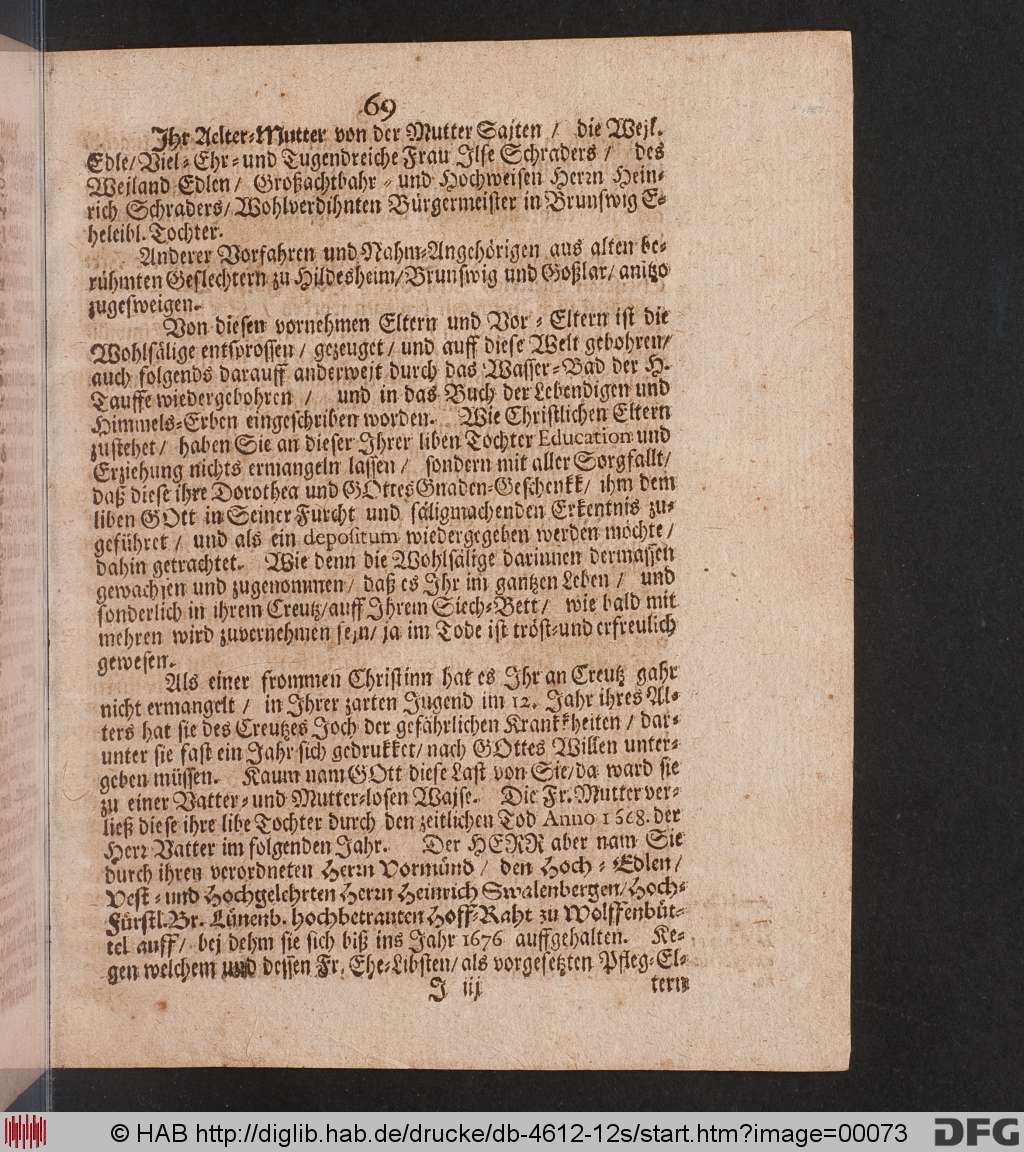 69
Ihr Aelter-Mutter von der Mutter Sajten / die Wejl.
Edle/ Viel-Ehr- und Tugendreiche Frau Ilse Schraders / des
Wejland Edlen/ Großachtbahr- und Hochweisen Herrn Hein-
rich Schraders/ Wohlverdihnten Bürgermeister in Brunswig E-
heleibl. Tochter.
Anderer Vorfahren und Nahm-Angehörigen aus alten be-
rühmten Geslechtern zu Hildesheim/ Brunswig und Goßlar/ anitzo
zugesweigen.
Von diesen vornehmen Eltern und Vor-Eltern ist die
Wohlsälige entsprossen / gezeuget / und auff diese Welt gebohren/
auch folgends darauff anderwejt durch das Wasser-Bad der H.
Tauffe wiedergebohren / und in das Buch der Lebendigen und
Himmels-Erben eingeschriben worden. Wie Christlichen Eltern
zustehet / haben Sie an dieser Ihrer liben Tochter Education und
Erziehung nichts ermangeln lassen / sondern mit aller Sorgfallt/
daß diese ihre Dorothea und GOttes Gnaden-Geschenkk/ ihm dem
liben GOtt in Seiner Furcht und säligmachenden Erkentnis zu-
geführet / und als ein depositum wiedergegeben werden möchte /
dahin getrachtet. Wie denn die Wohlsälige darinnen dermassen
gewachsen und zugenommen / daß es Ihr im gantzen Leben / und
sonderlich in ihrem Creutz/ auff Ihrem Siech-Bett / wie bald mit
mehren wird zuvernehmen sejn/ ja im Tode ist tröst- und erfreulich
gewesen.
Als einer frommen Christinn hat es Ihr an Creutz gahr
nicht ermangelt / in Ihrer zarten Jugend im 12. Jahr ihres Al-
ters hat sie des Creutzes Joch der gefährlichen Krankkheiten / dar-
unter sie fast ein Jahr sich gedrukket/ nach GOttes Willen unter-
geben müssen. Kaum nam GOtt diese Last von Sie/ da ward sie
zu einer Vatter- und Mutter-losen Wajse. Die Fr. Mutter ver-
ließ diese ihre libe Tochter durch den zeitlichen Tod Anno 1668. der
Herr Vatter im folgenden Jahr. Der HERR aber nam Sie
durch ihren verordneten Herrn Vormünd / den Hoch-Edlen/
Vest- und Hochgelehrten Herrn Heinrich Swalenbergen/ Hoch-
Fürstl. Br. Lünenb. hochbetrauten Hoff-Raht zu Wolffenbüt-
tel auff/ bej dehm sie sich biß ins Jahr 1676 auffgehalten. Ke-
gen welchem und dessen Fr. Ehe-Libsten/ als vorgesetzten Pfleg-El-
J iij tern
© HAB http://diglib.hab.de/drucke/db-4612-12s/start.htm?image=00073
DFG